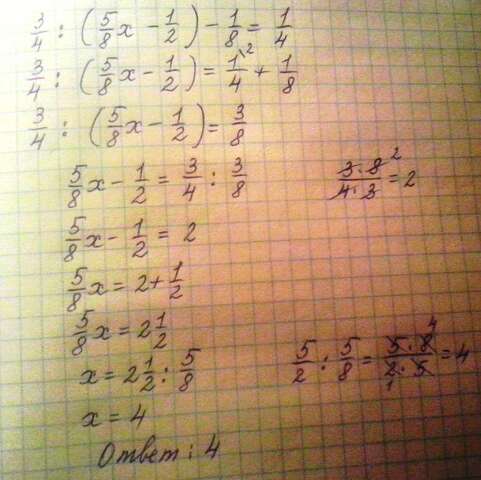 3/4 : (5/8 x − 1/2) − 1/8 = 1/4
3/4 : (5/8 x − 1/2) = 1/4 \2 + 1/8
3/4 : (5/8 x − 1/2) = 3/8
5/8 x − 1/2 = 3/4 : 3/8
3·8/4·3 2 = 2
5/8 x − 1/2 = 2
5/8 x = 2 + 1/2
5/8 x = 2 1/2
x = 2 1/2 : 5/8
5/2 : 5/8 = 5·8/2·5 4 1 = 4
x = 4
Ответ: 4